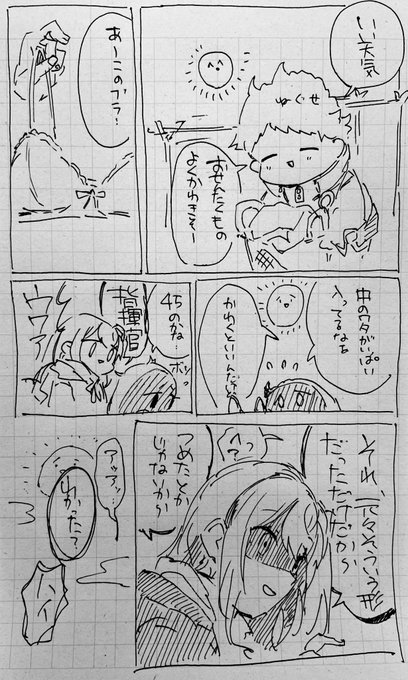 いい天気
ねぐせ
おせんたくもの
よくかわきそー
あーこのブラ…
中のワタがいっぱい
入ってるなぁ
かわくといいんだが
45のかな…ボソッ
指揮官
ウワァ
それ、元々そういう形
だっただけだから
?っ
つめたとか
じゃないから
アッアッ…
わかった?
ハイ